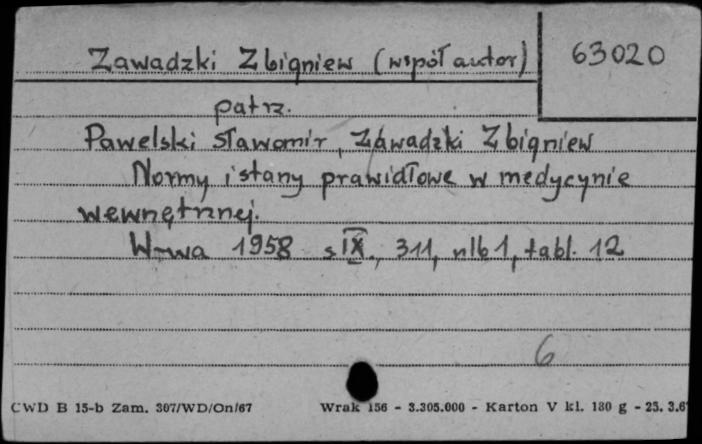 Zawadzki Zbigniew (współautor)
63020
patrz.
Pawelski Sławomir, Zawadzki Zbigniew
Normy i stany prawidłowe w medycynie
wewnętrznej.
W-wa 1958 s IX., 311, nlb 1, tabl. 12
6
CWD B 15-b Zam. 307/WD/On/67
Wrak 156 - 3.305.000 - Karton V kl. 180 g - 25. 3.6